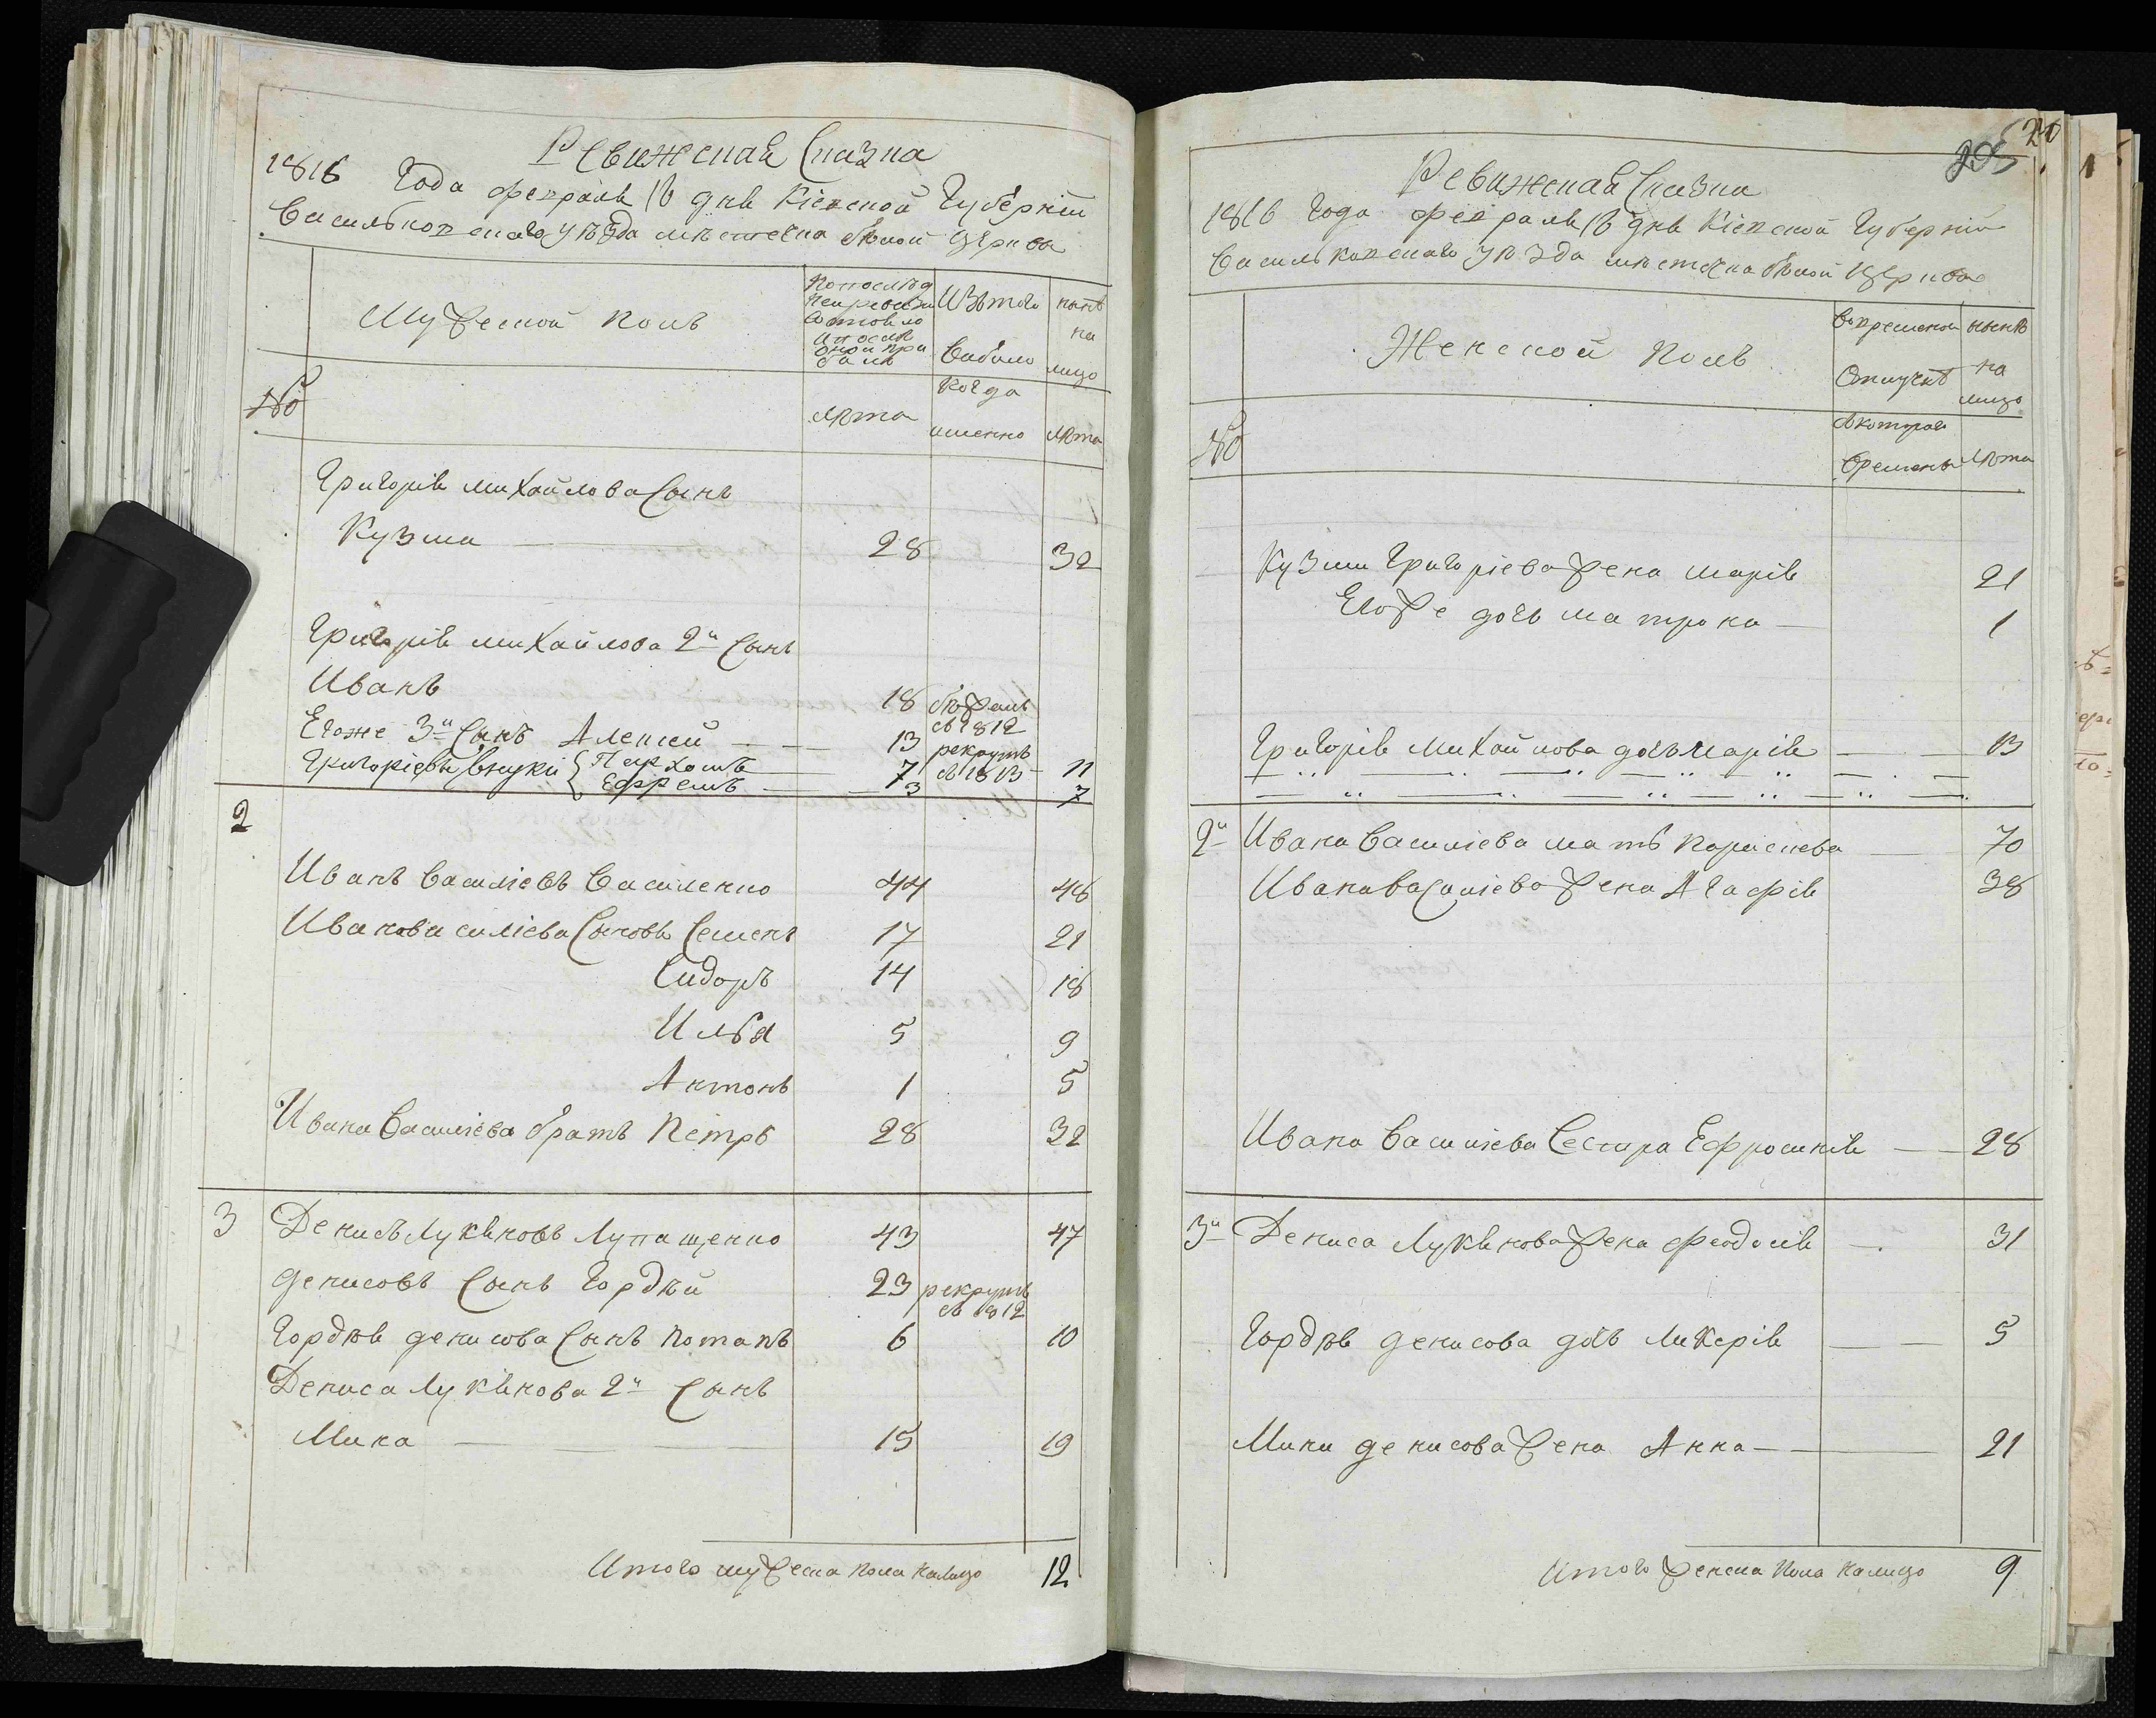 Ревижская Сказка
1816 Года февраля 16 дня Кіевской Губерніи
Васильковскаго уѣзда мѣстечка бѣлой Церкви
Мужеской полъ
По послед
ней ревизіи
состояло
и послѣ
оной при
было
Изъ того
выбыло
нынѣ
на
лицо
№
лѣта
Когда
именно
лѣта
Григорія михайлова Сынъ
Кузма 28 32
Григорія михайлова 2й Сынъ
Иванъ 18 бѣжалъ
въ 1812
Егоже 3й Сынъ Алексей 13 рекрутъ
въ 1813
Григоріевы внуки { Пархомъ 7 11
Ефремъ 3 7
2
Иванъ Василіевъ Василенко 44 48
Ивана василіева Сыновья Семенъ 17 21
Сидоръ 14 18
Илья 5 9
Антонъ 1 5
Ивана Василіева братъ Петръ 28 32
3 Денисъ Лукяновъ Лупащенко 43 47
денисовъ Сынъ Гордѣй 23 рекрутъ
въ 1812
Гордѣя денисова Сынъ потапъ 6 10
Дениса Лукянова 2й Сынъ
Мина 15 19
Итого мужеска пола налицо 12
205
Ревижская Сказка
1816 Года февраля 16 дня Кіевской Губерніи
Васильковскаго уѣзда мѣстечка бѣлой Церкви
Женской полъ
Во временной
отлучкѣ
нынѣ
на
лицо
№
съ котораго
времени
лѣта
Кузми Григоріева жена марія 21
Егоже дочь матрона 1
Григорія Михайлова дочь марія 13
2й Ивана Василіева мать параскева 70
Ивана василіева жена Агафія 38
Ивана Василіева Сестра Ефросинія 28
3й Дениса Лукянова жена феодосія 31
Гордѣя денисова дочь Ликерія 5
Мини денисова жена Анна 21
Итого женска пола налицо 9